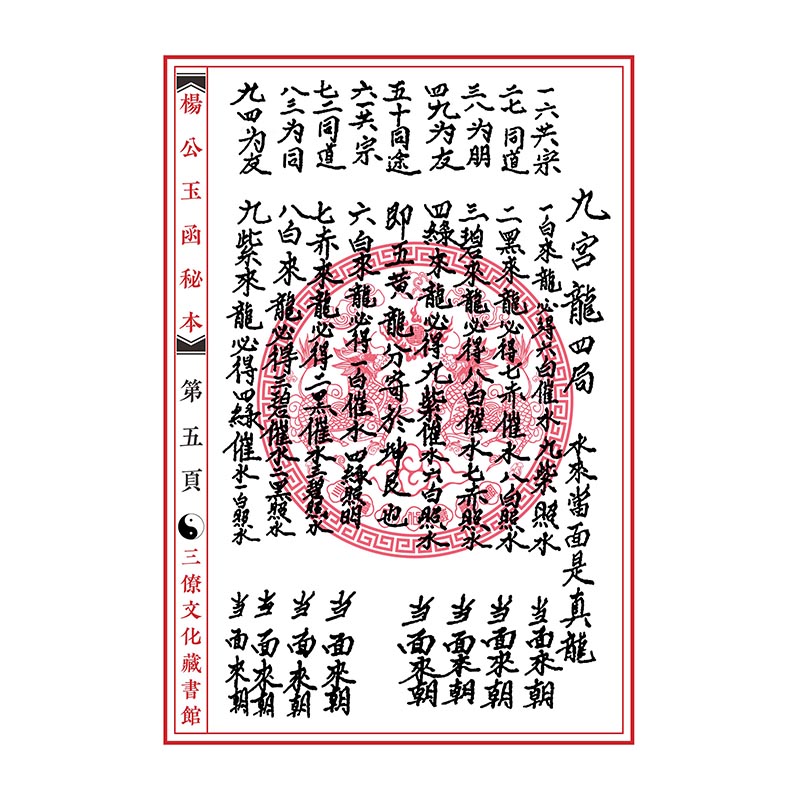 九宮龍四局 水來當面是真龍
一六共宗 一白來龍必得六白催水九紫照水 当面來朝
二七同道 二黑來龍必得七赤催水八白照水 当面來朝
三八为朋 三碧來龍必得八白催水七赤照水 当面來朝
四九为友 四綠來龍必得九紫催水六白照水 当面來朝
五十同途 即五黄龍分寄於坤艮也
六一共宗 六白來龍必得一白催水四綠照明 当面來朝
七二同道 七赤來龍必得二黑催水三碧照水 当面來朝
八三为同 八白來龍必得三碧催水二黑照水 当面來朝
九四为友 九紫來龍必得四綠催水一白照水 当面來朝
楊公玉函秘本 第五頁 三僚文化藏書館